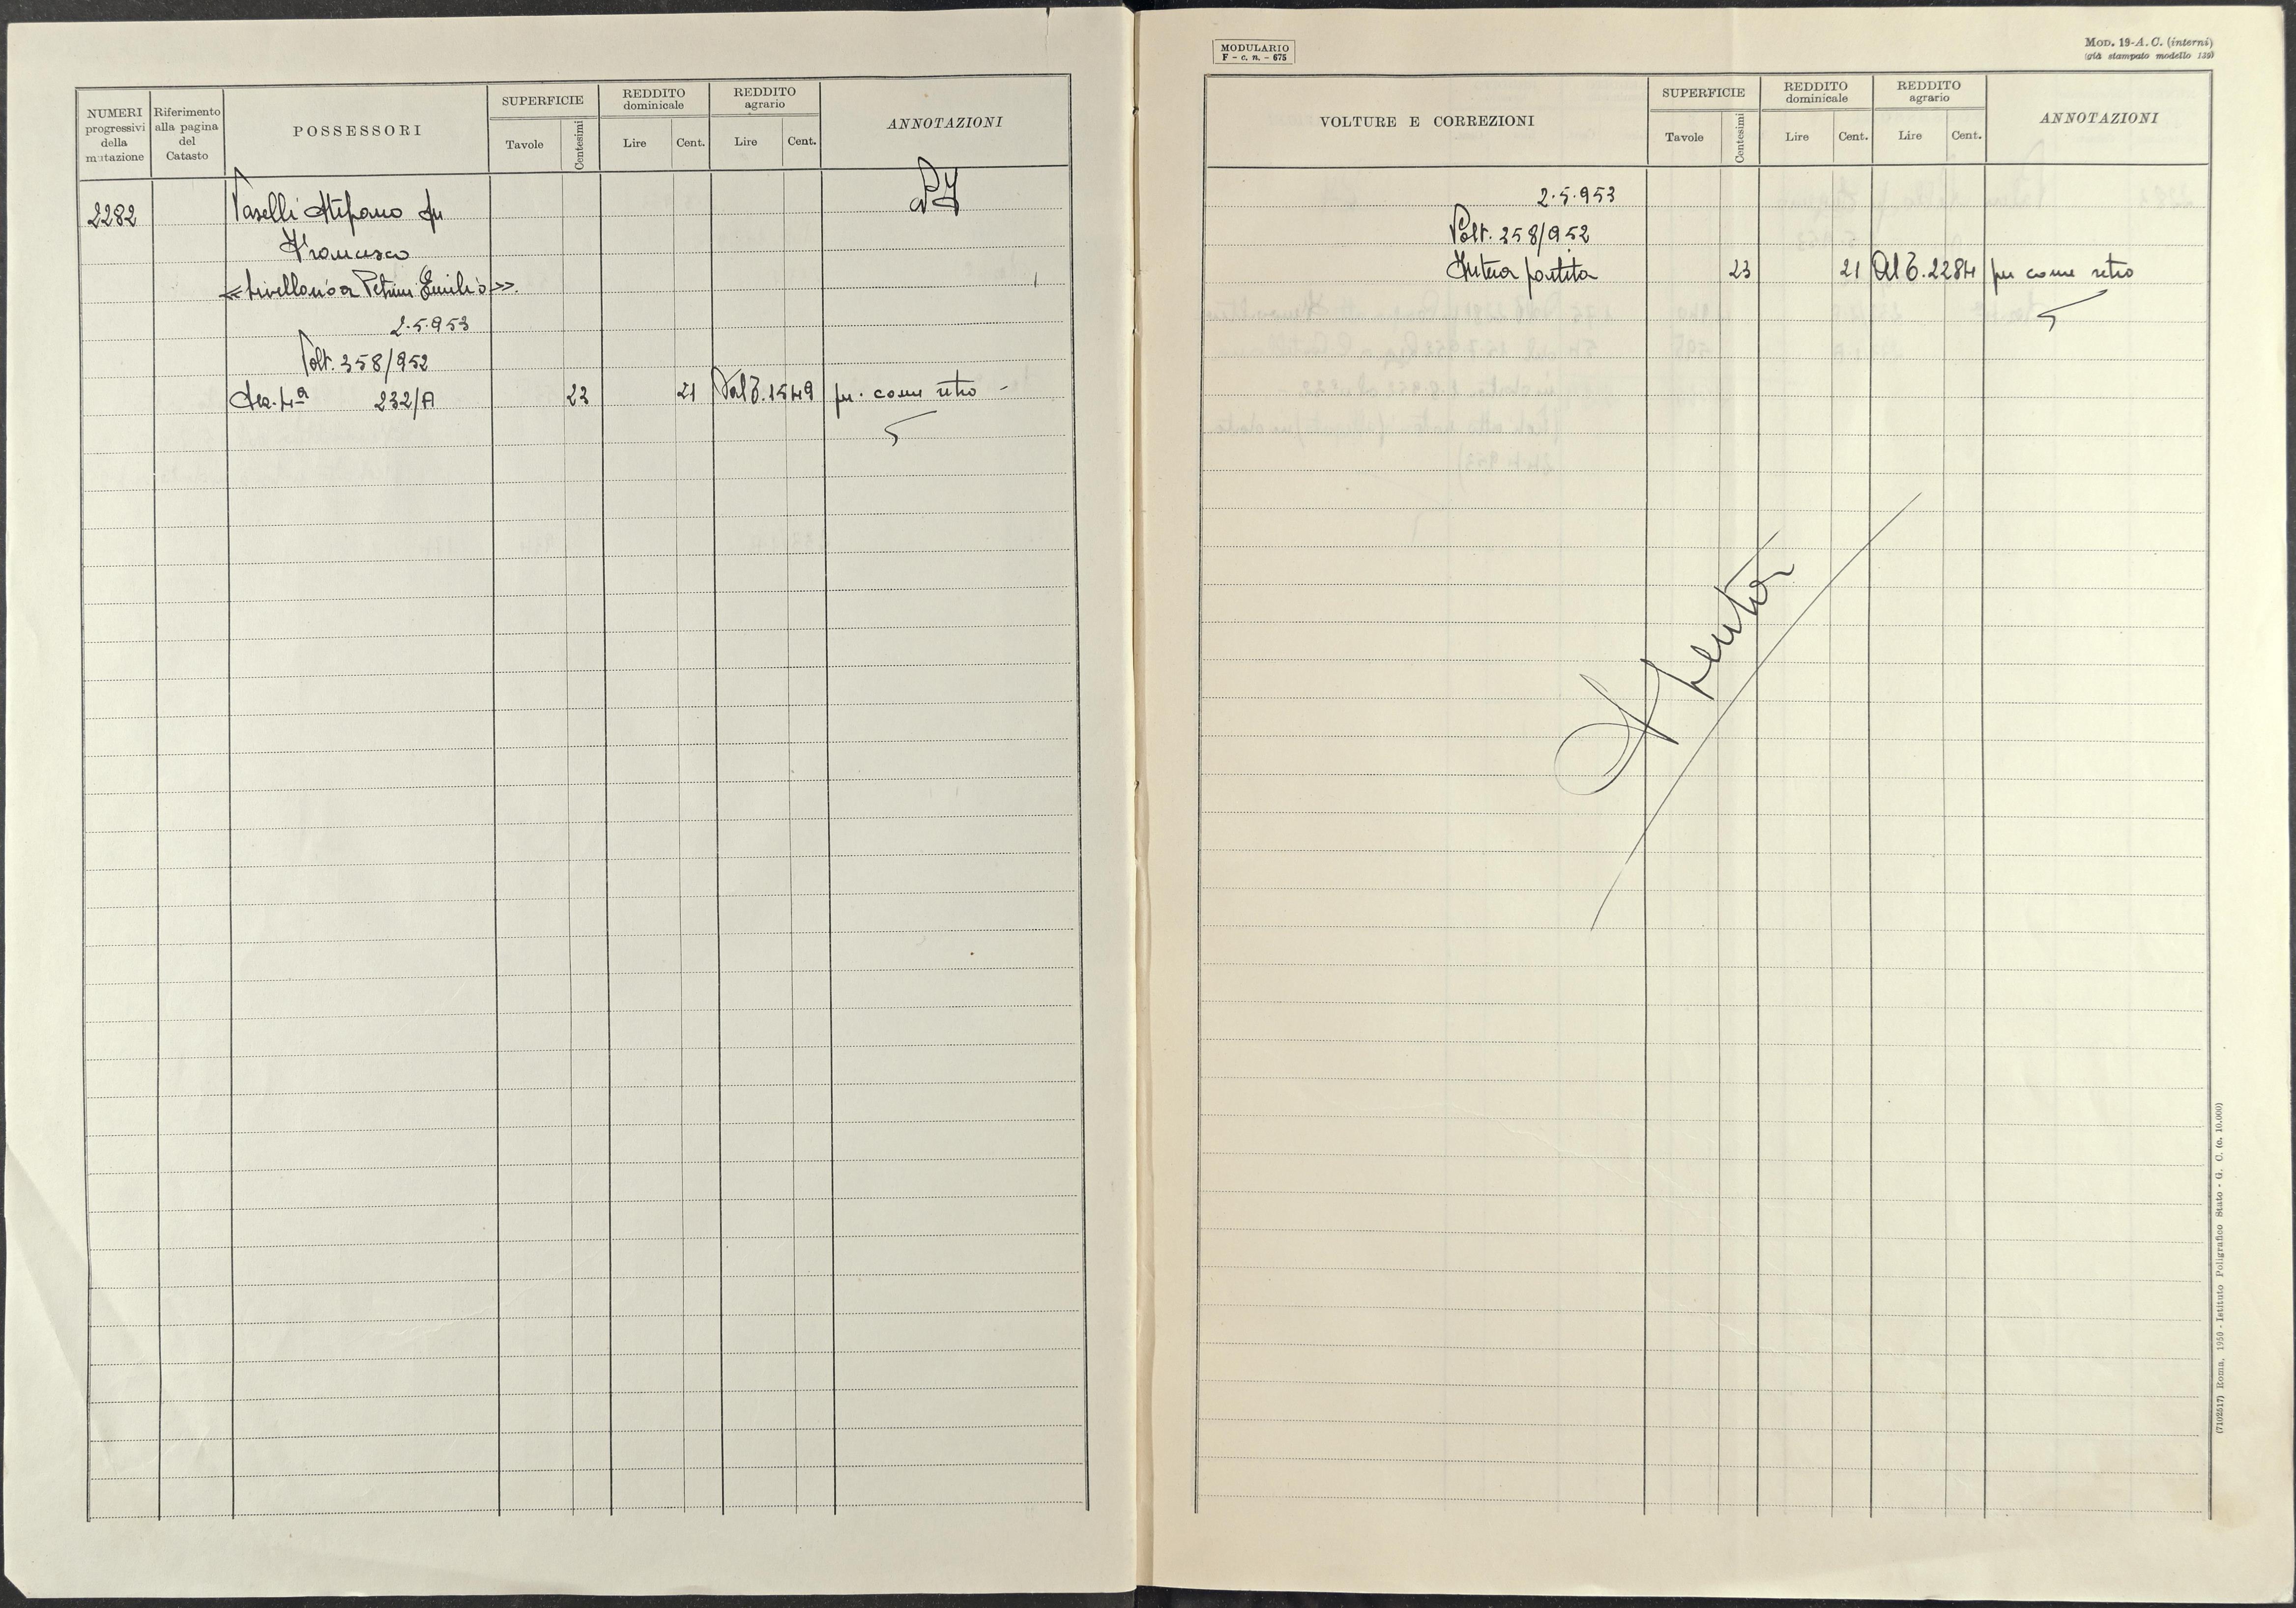 NUMERI progressivi della mutazione
Riferimento alla pagina del Catasto
POSSESSORI
SUPERFICIE
Tavole
Centesimi
REDDITO dominicale
Lire
Cent.
REDDITO agrario
Lire
Cent.
ANNOTAZIONI
2282
Vaselli Stefano fu
Francesco
«livellario a Petrini Emilio».
2.5.953
Volt. 358/952
Sez. 4ª 232/A 23 21 Dal 6.1549 per come retro -
MODULARIO
F - c. n. - 675
MOD. 19-A. C. (interni)
(già stampato modello 139)
VOLTURE E CORREZIONI
SUPERFICIE
Tavole
Centesimi
REDDITO dominicale
Lire
Cent.
REDDITO agrario
Lire
Cent.
ANNOTAZIONI
2.5.953
Volt. 358/952
Intera partita 23 21 Al 6.2284 per come retro
Spenta
(7102517) Roma, 1950 - Istituto Poligrafico Stato - G. C. (c. 10.000)